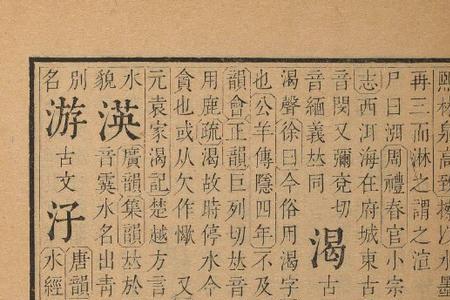 熙林泉高致極以水墨
再三而淋之謂之渲
尸曰周禮春官小宗
志西洱海在府城東古
音閔又彌兗切
音緬義𠀤同
渴
古
渴聲徐曰今俗用渴字
也公羊傳隱四年不及
韻會正韻巨列切𠀤
用鹿疏渴故時停水今
貪也或从欠作㵣 又
元袁家渴記楚越方言
水
貌
渶
廣韻集韻𠀤於
音霙水名出青
別
名
游
古文
汓
唐韻
水經